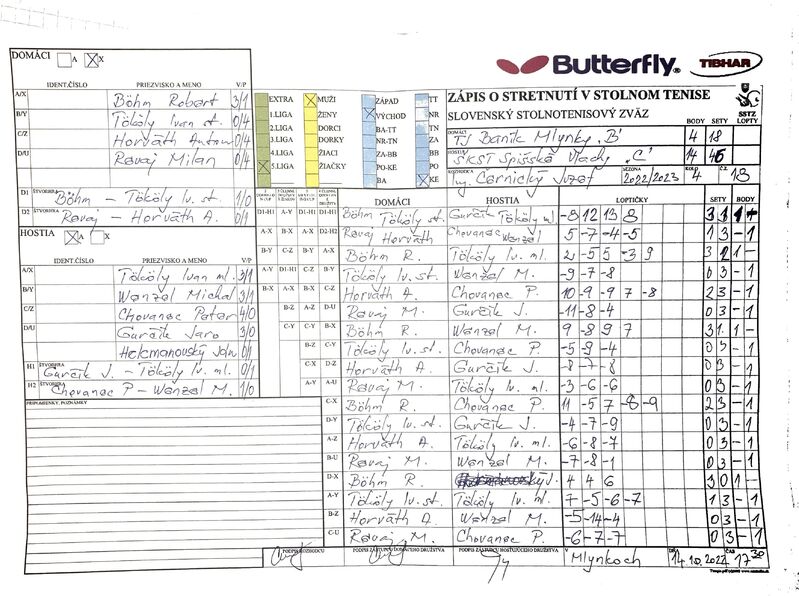 DOMÁCI A X
Butterfly® TIBHAR
IDENT.ČÍSLO PRIEZVISKO A MENO V/P
A/X Böhm Robert 3/1
B/Y Tököly Ivan st. 0/4
C/Z Horváth Anton 0/4
D/U Ravaj Milan 0/4
D1 ŠTVORHRA Böhm - Tököly Iv. st. 1/0
D2 ŠTVORHRA Ravaj - Horváth A. 0/1
HOSTIA A X
IDENT.ČÍSLO PRIEZVISKO A MENO V/P
A/X Tököly Ivan ml. 3/1
B/Y Wenzel Michal 3/1
C/Z Chovanec Peter 4/0
D/U Gurčík Jaro 3/0
Helcmanovský 0/1
H1 ŠTVORHRA Gurčík J. - Tököly Iv. ml. 0/1
H2 ŠTVORHRA Chovanec P - Wenzel M. 1/0
PRIPOMIENKY, POZNÁMKY
EXTRA MUŽI ZÁPAD TT
1.LIGA ŽENY VÝCHOD NR
2.LIGA DORCI BA-TT TN
3.LIGA DORKY NR-TN ZA
4.LIGA ŽIACI ZA-BB BB
5.LIGA ŽIAČKY PO-KE PO
BA KE
ZÁPIS O STRETNUTÍ V STOLNOM TENISE
SLOVENSKÝ STOLNOTENISOVÝ ZVÄZ SSTZ
BODY SETY LOPTY
DOMÁCI TJ Baník Mlynky „B" 4 18
HOSTIA ŠKST Spišské Vlachy „C" 14 46
ROZHODCA Ing. Černický Jozef SEZÓNA 2022/2023 KOLO 4 Č.Z. 18
DOMÁCI HOSTIA LOPTIČKY SETY BODY
D1-H1 Böhm Tököly st. Gurčík Tököly ml -8 12 13 8 3 1 1 -
D2-H2 Ravaj Horváth Chovanec Wenzel 5 -7 -4 -5 1 3 - 1
A-X Böhm R. Tököly Iv. ml. 2 -5 5 -3 9 3 2 1 -
B-Y Tököly Iv. st. Wenzel M. -9 -7 -8 0 3 - 1
C-Z Horváth A. Chovanec P. 10 -9 -9 7 -8 2 3 - 1
D-U Ravaj M. Gurčík J. -11 -8 -4 0 3 - 1
Böhm R. Wenzel M. 9 -8 9 7 3 1 1 -
Tököly Iv. st. Chovanec P. -5 -9 -4 0 3 - 1
Horváth A. Gurčík J. -8 -7 -8 0 3 - 1
Ravaj M. Tököly Iv. ml. -3 -6 -6 0 3 - 1
C-X Böhm R. Chovanec P. 11 -5 7 -8 -9 2 3 - 1
D-Y Tököly Iv. st. Gurčík J. -4 -7 -9 0 3 - 1
A-Z Horváth A. Tököly Iv. ml. -6 -8 -7 0 3 - 1
B-U Ravaj M. Wenzel M. -7 -8 -1 0 3 - 1
D-X Böhm R. 4 4 6 3 0 1 -
A-Y Tököly Iv. st. Tököly Iv. ml. 7 -5 -6 -7 1 3 - 1
B-Z Horváth A. Wenzel M. -5 -14 -4 0 3 - 1
C-U Ravaj M. Chovanec P. -6 -7 -7 0 3 - 1
PODPIS ROZHODCU PODPIS ZÁSTUPCU DOMÁCEHO DRUŽSTVA PODPIS ZÁSTUPCU HOSŤUJÚCEHO DRUŽSTVA V Mlynkoch 14.10.2022 ČAS 17 30